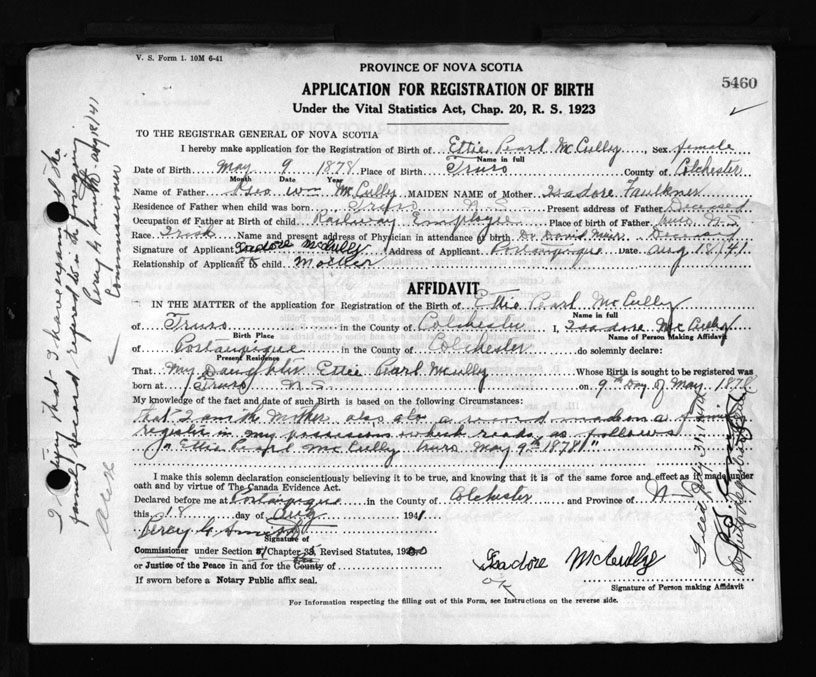 V. S. Form 1. 10M 6-41
PROVINCE OF NOVA SCOTIA
5460
APPLICATION FOR REGISTRATION OF BIRTH
Under the Vital Statistics Act, Chap. 20, R. S. 1923
TO THE REGISTRAR GENERAL OF NOVA SCOTIA
I hereby make application for the Registration of Birth of Ettie Pearl McCully Sex female
Name in full
Date of Birth May 9 1878 Place of Birth Truro County of Colchester
Month Date Year
Name of Father Geo Wm McCully MAIDEN NAME of Mother Isadore Faulkner
Residence of Father when child was born Truro N.S. Present address of Father Deceased
Occupation of Father at Birth of child Railway Employee Place of birth of Father N.S.
Race Irish Name and present address of Physician in attendance at birth Dr David Muir Deceased
Signature of Applicant Isadore McCully Address of Applicant Portaupique Date Aug 18/41
Relationship of Applicant to child Mother
AFFIDAVIT
IN THE MATTER of the application for Registration of the Birth of Ettie Pearl McCully
Name in full
of Truro in the County of Colchester I, Isadore McCully
Birth Place Name of Person Making Affidavit
of Portaupique in the County of Colchester do solemnly declare:
Present Residence
That My Daughter Ettie Pearl McCully Whose Birth is sought to be registered was
born at Truro N.S. on 9th Day of May 1878
My knowledge of the fact and date of such Birth is based on the following Circumstances:
That I am the Mother also a record made in a family
register in my possession which reads as follows
"Ettie Pearl McCully Truro May 9th 1878"
I make this solemn declaration conscientiously believing it to be true, and knowing that it is of the same force and effect as if made under
oath and by virtue of The Canada Evidence Act.
Declared before me at Portaupique in the County of Colchester and Province of N.S.
this 18 day of Aug 1941
Percy G Smith
Signature of
Commissioner under Section 5/Chapter 35, Revised Statutes, 1923
or Justice of the Peace in and for the County of
If sworn before a Notary Public affix seal.
Isadore McCully
OK
Signature of Person making Affidavit
For Information respecting the filling out of this Form, see Instructions on the reverse side.
I certify that I have examined the
family record referred to in the foregoing
Percy G Smith Aug 18/41
Commissioner